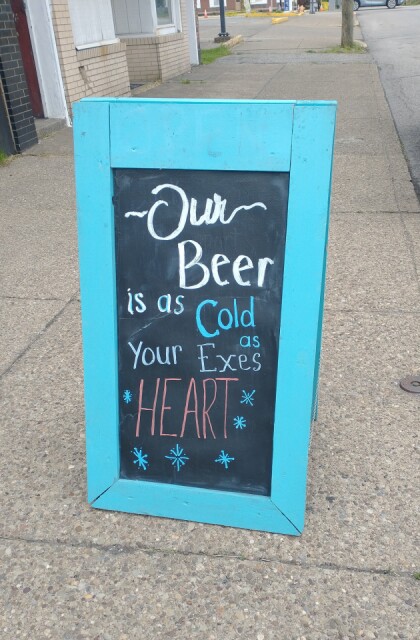 ~Our~
Beer
is as Cold
as
Your Exes
HEART